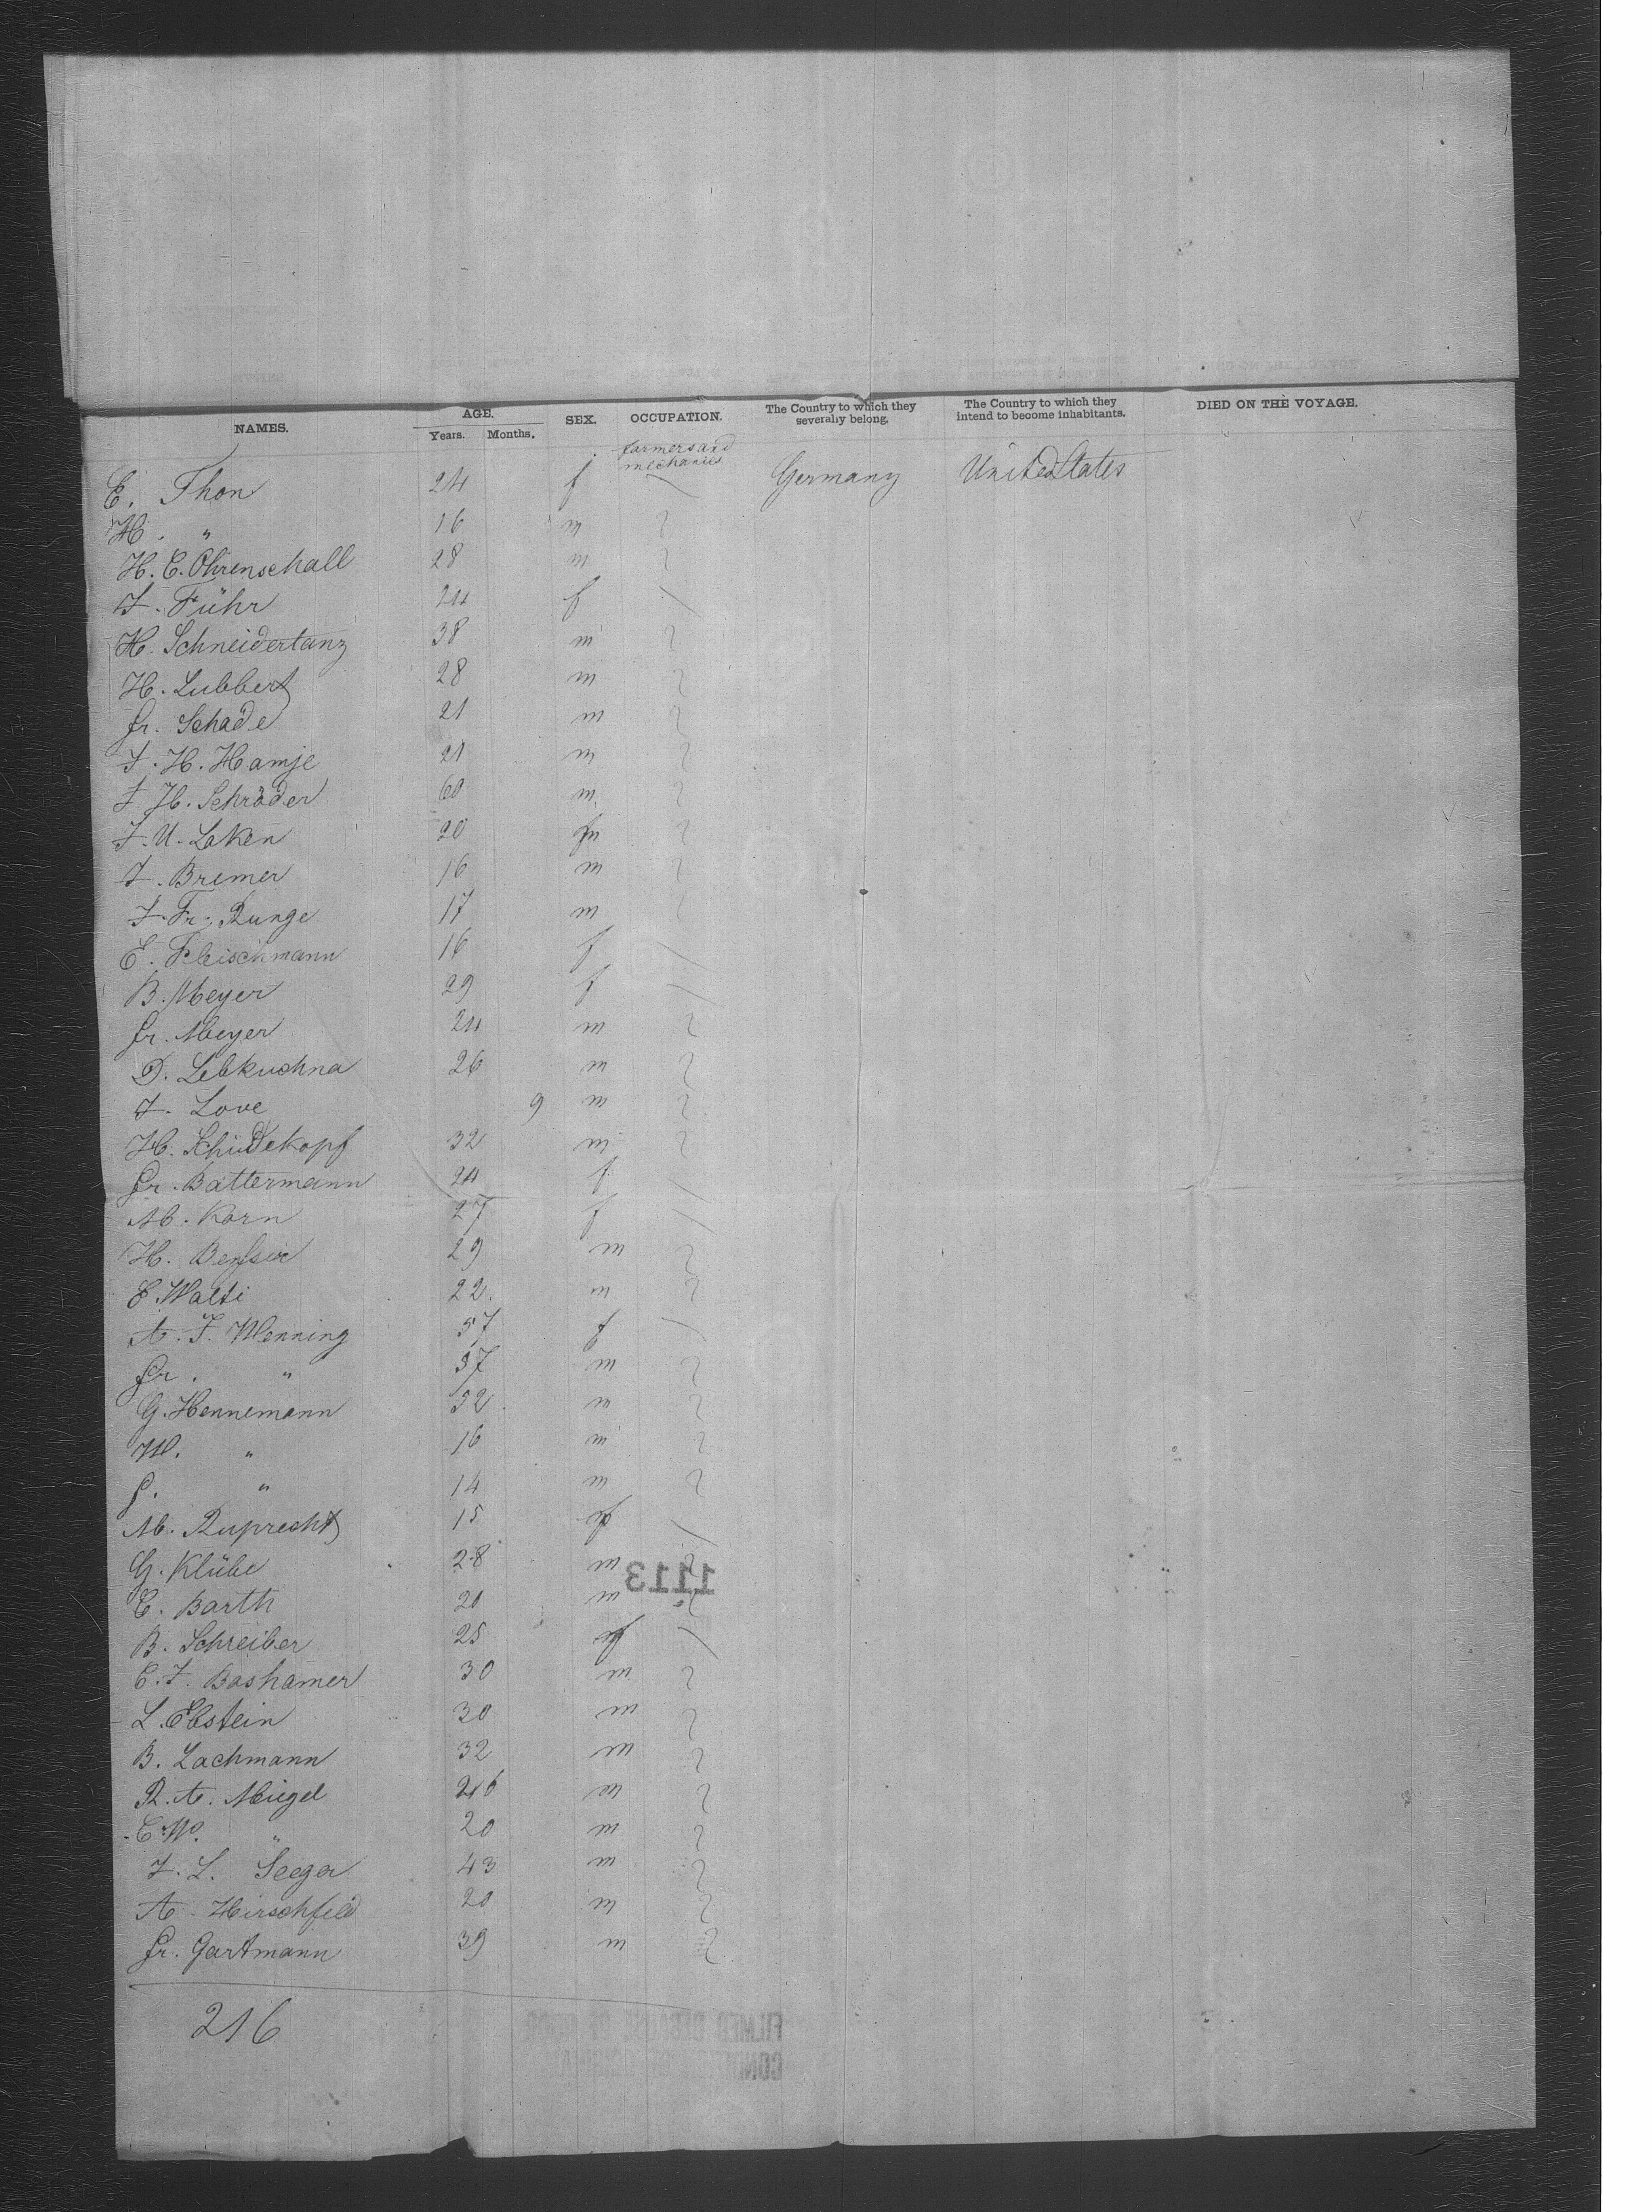 NAMES. AGE. SEX. OCCUPATION. The Country to which they severally belong. The Country to which they intend to become inhabitants. DIED ON THE VOYAGE.
Years. Months.
farmers and
mechanics
E. Thon 24 f Germany United States
H. " 16 m
H. C. Ohrenschall 28 m
J. Führ 24 f
H. Schneidertanz 38 m
H. Lubbert 28 m
Fr. Schade 21 m
J. H. Hamje 21 m
J H. Schröder 60 m
J. U. Laken 20 m
J. Bremer 16 m
J. Fr. Runge 17 m
E. Fleischmann 16 f
B. Meyer 29 f
Fr. Meyer 24 m
D. Lebkuchna 26 m
J. Love 9 m
H. Schüdekopf 32 m
Fr. Battermann 24 f
M. Korn 27 f
H. 29 m
E Walti 22 m
A. F. Menning 57 f
Fr. " 37 m
G. Hennemann 52 m
W. " 16 m
F. " 14 m
M. Ruprecht 15 f
G. Klübe 28 m
1113
C. Barth 20 m
B. Schreiber 25 f
C. J. Bashamer 30 m
L. Ebstein 30 m
B. Lachmann 32 m
R. A. Miegel 26 m
C. W. " 20 m
J. L. Seeger 43 m
A. Hirschfeld 20 m
Fr. Gartmann 39 m
216